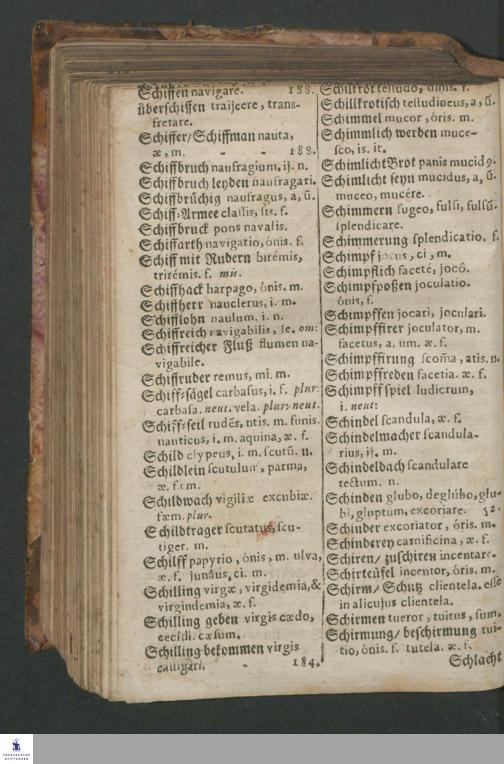 Schiffen navigare. 188.
überschiffen traijcere, trans-
fretare.
Schiffer/Schiffman nauta,
æ, m. - - 188.
Schiffbruch naufragium, ij. n.
Schiffbruch leyden naufragari.
Schiffbrüchig naufragus, a, ũ.
Schiff-Armee classis, sis. f.
Schiffbruck pons navalis.
Schiffarth navigatio, ónis. f.
Schiff mit Rudern birémis,
trirémis. f. mis.
Schiffhack harpago, ónis. m.
Schiffherr nauclerus, i. m.
Schifflohn naulum. i. n.
Schiffreich navigabilis, le. om:
Schiffreicher Fluß flumen na-
vigabile.
Schiffruder remus, mi. m.
Schiff-sägel carbasus, i. f. plur:
carbasa. neut. vela. plur: neut.
Schiff-seil rudẽs, ntis. m. funis.
nauticus, i. m. aquina, æ. f.
Schild clypeus, i. m. scutũ. n.
Schildlein scutulum, parma,
æ. fæm.
Schildwach vigiliæ excubiæ.
fæm. plur.
Schildtrager scutatus, scu-
tiger. m.
Schilff papyrio, ónis, m. ulva,
æ. f. ci. m.
Schilling virgæ, virgidemia, &
virgindemia, æ. f.
Schilling geben virgis cædo,
cecídi. cæsum.
Schilling bekommen virgis
castigari. - 184.
Schilkrot testudo, dinis. f.
Schillkrotisch testudineus, a, ũ.
Schimmel mucor, óris. m.
Schimmlich werden muce-
sco, is. it.
Schimlicht Brot panis mucidꝰ.
Schimlicht seyn mucidus, a, ũ.
muceo, mucére.
Schimmern fugeo, fulsi, fulsũ.
splendicare.
Schimmerung splendicatio. f.
Schimpf jocus, ci, m.
Schimpflich faceté, jocô.
Schimpfpoßen joculatio.
ónis, f.
Schimpffen jocari, joculari.
Schimpffirer joculator, m.
facetus, a, um. æ. f.
Schimpffirung scom̃a, atis. n.
Schimpffreden facetia. æ. f.
Schimpff spiel ludicrum,
i. neut:
Schindel scandula, æ. f.
Schindelmacher scandula-
rius, ij. m.
Schindeldach scandulare
tectum. n.
Schinden glubo, deglúbo, glu-
bi, gluptum, excoriare. 52.
Schinder excoriator, óris. m.
Schinderey carnificina, æ. f.
Schiren/ zuschiren incentare.
Schirteüfel incentor, óris. m.
Schirm/ Schutz clientela. esse
in alicujus clientela.
Schirmen tueror, tuitus, sum.
Schirmung/ beschirmung tui-
tio, ónis. f. tutela. æ. f.
Schlacht
FRANCKESCHE
STIFTUNGEN